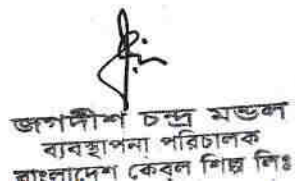 জগদীশ চন্দ্র মন্ডল
ব্যবস্থাপনা পরিচালক
বাংলাদেশ কেবল শিল্প লিঃ